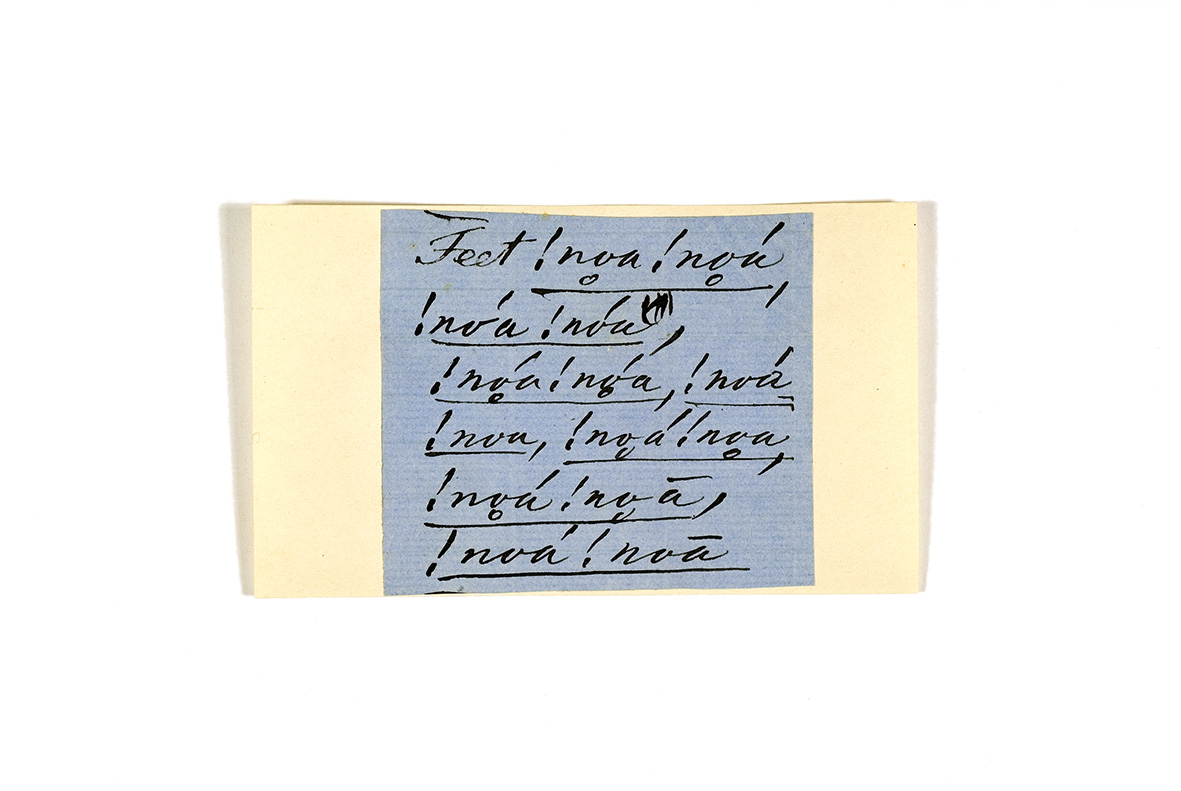 Feet !no̥a !no̥á,
!nóa !nóa,
!nó̥a !nó̥a, !noá
!noa, !no̥á !no̥a,
!no̥á !no̥ā,
!noá !noā